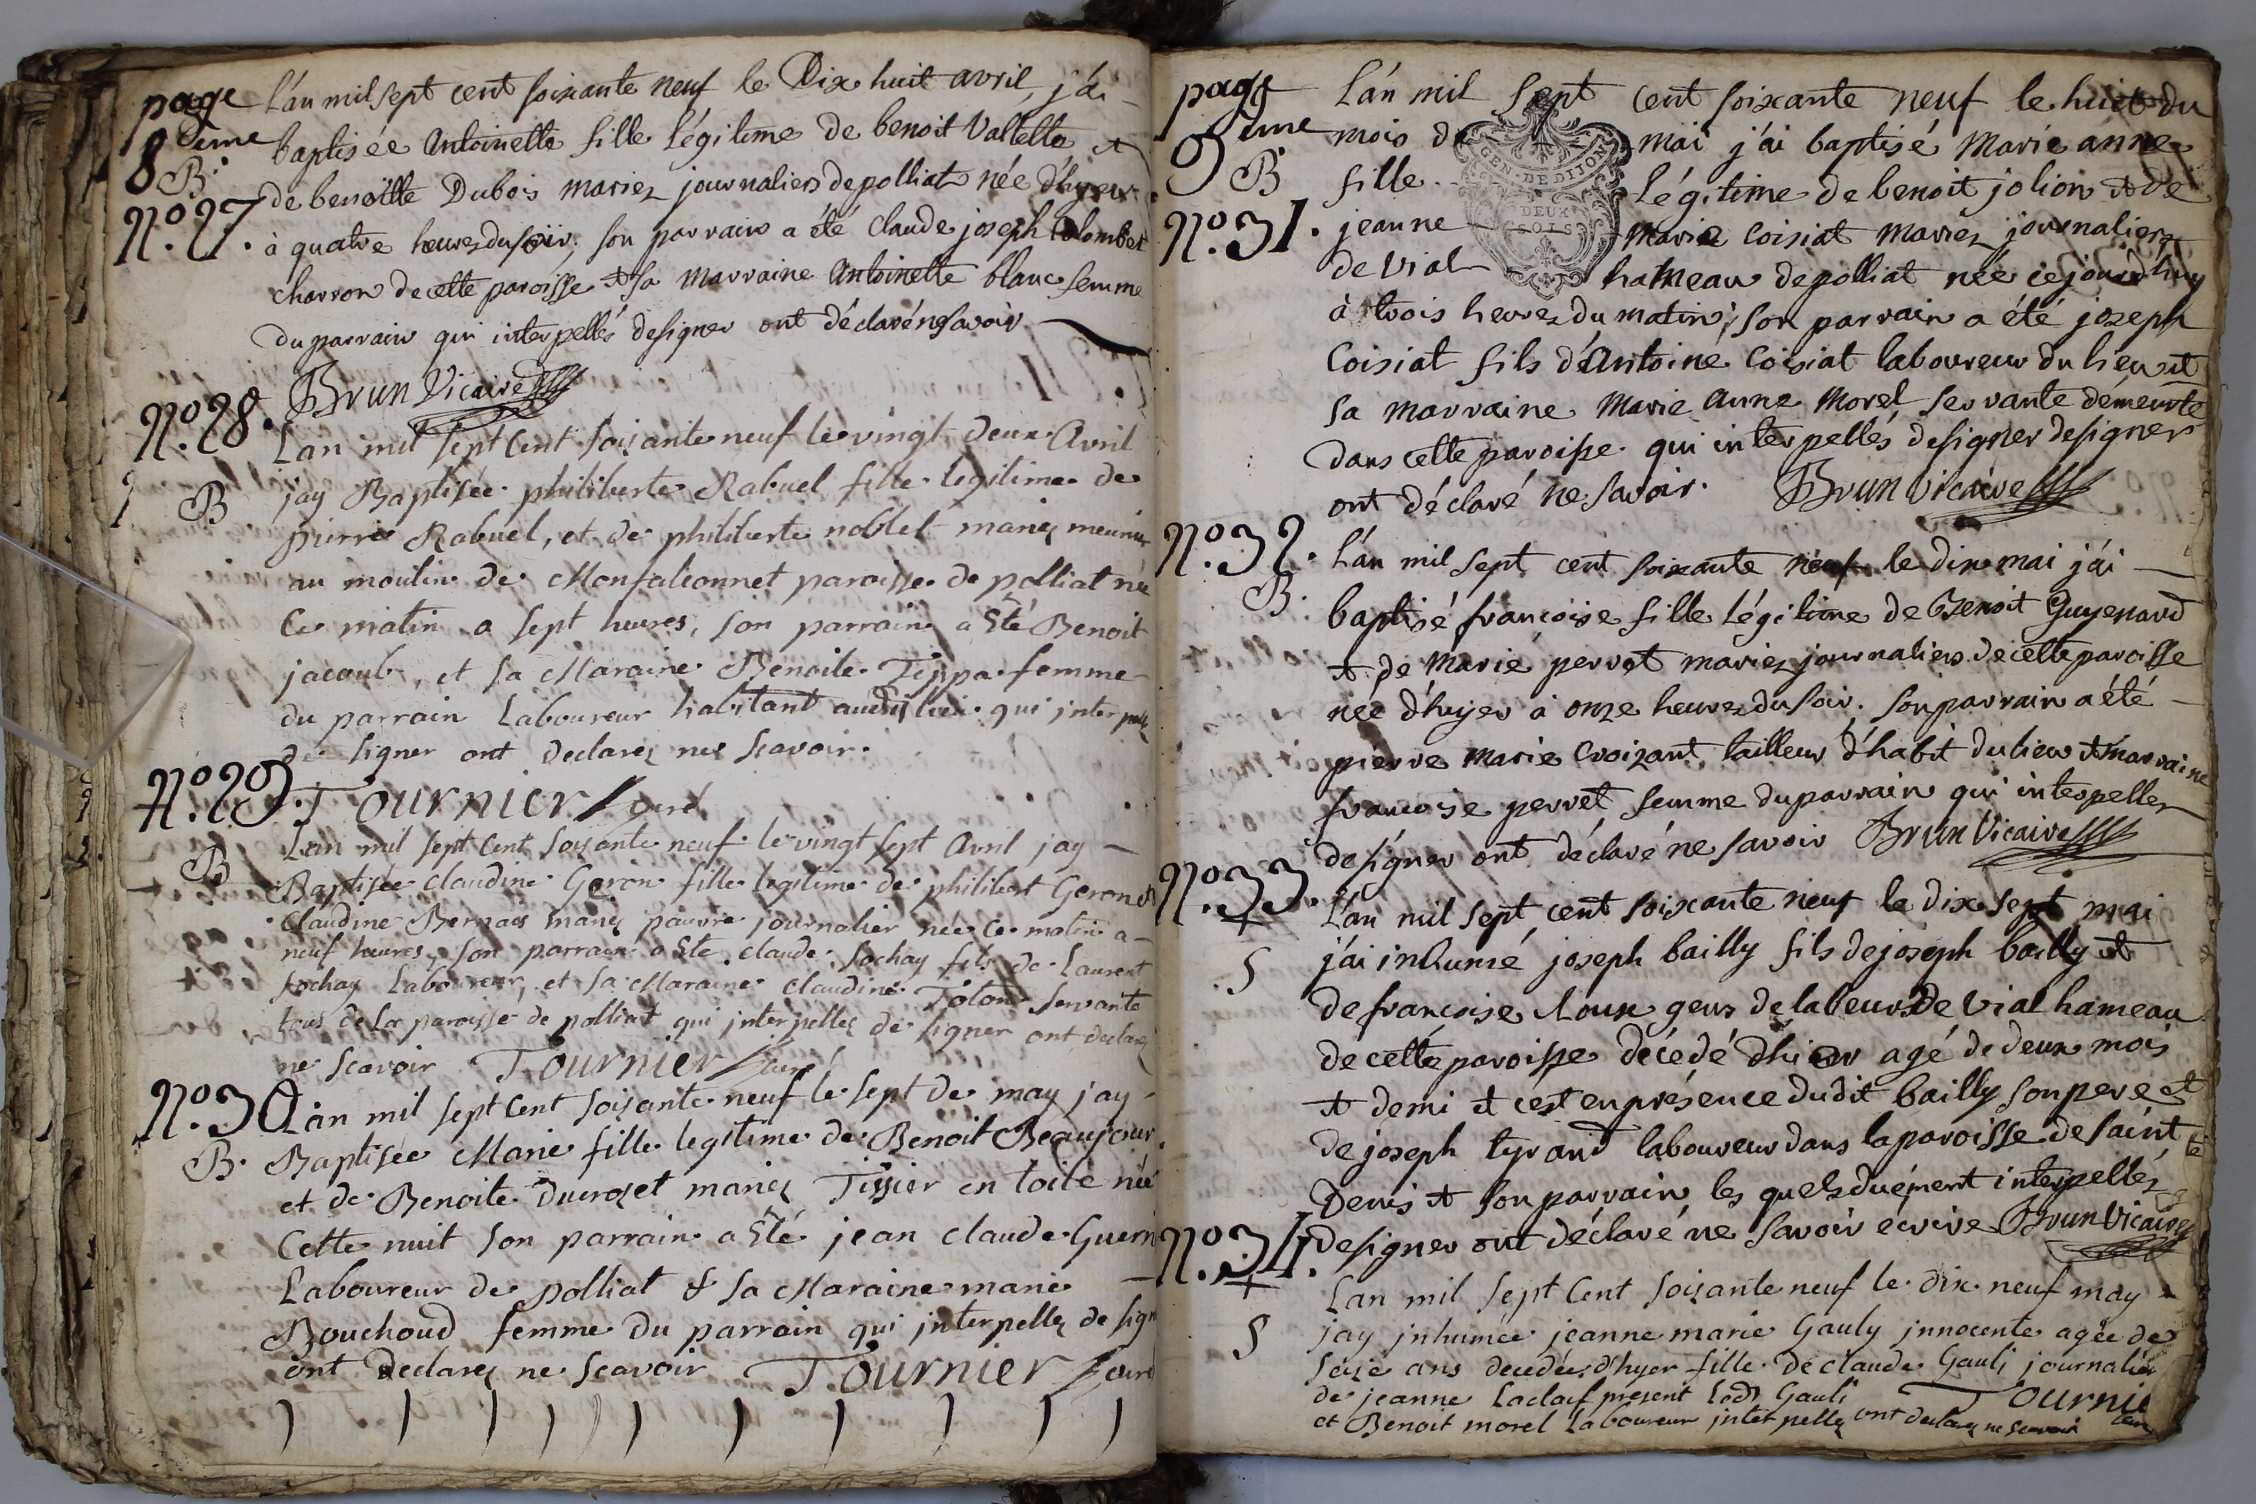 page
8eme
B.
N.o 27.
L'an mil sept cent soixante neuf le Dix huit avril, j'ai
baptisée Antoinette fille légitime de benoit Vallette et
de benoitte Dubois mariez journaliers de polliat née d'hyer
à quatre heures du soir, son parrain a été claude joseph Colombet
charron de cette paroisse et sa marraine Antoinette blanc femme
du parrain qui interpellés de signer ont déclaré ne savoir
Brun Vicaire
N.o 28.
B
Lan mil sept Cent soixante neuf le vingt deux Avril
jay Baptisée philiberte Rabuel fille legitime de
pierre Rabuel, et de philiberte noblet mariez meunier
au moulin de Monfalconnet paroisse de polliat née
Ce matin a sept heures, son parrain a Eté Benoit
jacoub, et sa Maraine Benoite Tippa femme
du parrain Laboureur habitant audit lieu qui interpellez
de signer ont declarez ne scavoir.
Tournier curé
N.o 29.
B
Lan mil sept Cent soixante neuf le vingt sept Avril jay
Baptisée claudine Geron fille legitime de philibert Geron et
claudine Bernais mariez pauvre journalier née Ce matin a
neuf heures, son parrain a Ete claude sochay fils de Laurent
sochay Laboureur, et sa Maraine claudine Toton servante
tous de la paroisse de polliat qui interpellez de signer ont declarez
ne scavoir Tournier curé
N.o 30
B.
Lan mil sept Cent soixante neuf le sept de may jay
Baptisée Marie fille legitime de Benoit Beaujour
et de Benoite Ducrozet mariez Tissier en toile née
Cette nuit son parrain a Eté jean claude Guerin
Laboureur de polliat & sa Maraine marie
Bouchoud femme du parrain qui interpellez de sign
ont declarez ne scavoir Tournier curé
page
9eme
B
N.o 31.
GEN. DE DIJON
DEUX
SOLS
L'an mil sept cent soixante neuf le huit du
mois de mai j'ai baptisé Marie anne
fille légitime de benoit jolion et de
jeanne marie Coisiat mariez journaliers
de Vial hameau de polliat née cejourd'huy
à trois heures du matin, son parrain a été joseph
Coisiat fils d'Antoine Coisiat laboureur du lieu et
sa marraine Marie Anne Morel servante démeurte
dans cette paroisse qui interpellés de signer de signer
ont déclaré ne savoir. Brun Vicaire
N.o 32.
B.
L'an mil sept cent soixante neuf le dix mai j'ai
baptisé françoise fille légitime de Benoit Guyenard
et de Marie perret mariez journaliers de cette paroisse
née d'hyer à onze heures du soir. son parrain a été
pierre Marie Croizant tailleur d'habit du lieu et marraine
francoise perret femme du parrain qui interpellez
de signer ont déclaré ne savoir Brun Vicaire
N.o 33.
S
L'an mil sept cent soixante neuf le dix sept mai
j'ai inhumé joseph bailly fils de joseph bailly et
de françoise Loux gens de labeurs de Vial hameau
de cette paroisse décédé d'hier agé de deux mois
et demi et c'est en présence dudit bailly son pere et
de joseph tyrand laboureur dans la paroisse de saint
Denis et son parrain les quels duément interpellés
de signer ont déclaré ne savoir ecrire Brun Vicaire
N.o 34.
S
Lan mil sept Cent soixante neuf le dix neuf may
jay inhumée jeanne marie Gauly innocente agée de
seize ans decedée d'hyer fille de claude Gauli journalier
de jeanne Laclaif present led. Gauli Tournier
et Benoit morel Laboureur interpellez ont declarez ne scavoir curé